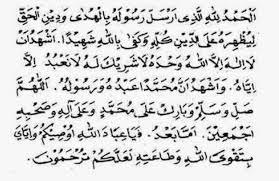 اَلْحَمْدُ لِلّٰهِ الَّذِيْ اَرْسَلَ رَسُوْلَهُ بِالْهُدٰى وَدِيْنِ الْحَقِّ
لِيُظْهِرَهُ عَلَى الدِّيْنِ كُلِّهِ وَكَفٰى بِاللّٰهِ شَهِيْدًا. اَشْهَدُ اَنْ
لَا اِلٰهَ اِلَّا اللّٰهُ وَحْدَهُ لَا شَرِيْكَ لَهُ لَا نَعْبُدُ اِلَّا
اِيَّاهُ. وَاَشْهَدُ اَنَّ مُحَمَّدًا عَبْدُهُ وَرَسُوْلُهُ. اَللّٰهُمَّ
صَلِّ وَسَلِّمْ وَبَارِكْ عَلَى مُحَمَّدٍ وَعَلَى اٰلِهِ وَصَحْبِهِ
اَجْمَعِيْنَ. اَمَّا بَعْدُ. فَيَا عِبَادَ اللّٰهِ اُوْصِيْكُمْ وَاِيَّايَ
بِتَقْوَى اللّٰهِ وَطَاعَتِهِ لَعَلَّكُمْ تُرْحَمُوْنَ.